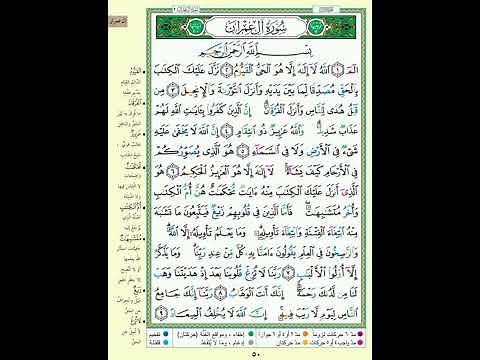 سُورَةُ آلِ عِمْرَانَ
بِسْمِ ٱللَّهِ ٱلرَّحْمَٰنِ ٱلرَّحِيمِ
الٓمٓ ١ ٱللَّهُ لَآ إِلَٰهَ إِلَّا هُوَ ٱلْحَىُّ ٱلْقَيُّومُ ٢ نَزَّلَ عَلَيْكَ ٱلْكِتَٰبَ
بِٱلْحَقِّ مُصَدِّقًا لِّمَا بَيْنَ يَدَيْهِ وَأَنزَلَ ٱلتَّوْرَىٰةَ وَٱلْإِنجِيلَ ٣ مِن
قَبْلُ هُدًى لِّلنَّاسِ وَأَنزَلَ ٱلْفُرْقَانَ ۗ إِنَّ ٱلَّذِينَ كَفَرُوا۟ بِـَٔايَٰتِ ٱللَّهِ لَهُمْ
عَذَابٌ شَدِيدٌ ۗ وَٱللَّهُ عَزِيزٌ ذُو ٱنتِقَامٍ ٤ إِنَّ ٱللَّهَ لَا يَخْفَىٰ عَلَيْهِ
شَىْءٌ فِى ٱلْأَرْضِ وَلَا فِى ٱلسَّمَآءِ ٥ هُوَ ٱلَّذِى يُصَوِّرُكُمْ
فِى ٱلْأَرْحَامِ كَيْفَ يَشَآءُ ۚ لَآ إِلَٰهَ إِلَّا هُوَ ٱلْعَزِيزُ ٱلْحَكِيمُ ٦ هُوَ
ٱلَّذِىٓ أَنزَلَ عَلَيْكَ ٱلْكِتَٰبَ مِنْهُ ءَايَٰتٌ مُّحْكَمَٰتٌ هُنَّ أُمُّ ٱلْكِتَٰبِ
وَأُخَرُ مُتَشَٰبِهَٰتٌ ۖ فَأَمَّا ٱلَّذِينَ فِى قُلُوبِهِمْ زَيْغٌ فَيَتَّبِعُونَ مَا تَشَٰبَهَ
مِنْهُ ٱبْتِغَآءَ ٱلْفِتْنَةِ وَٱبْتِغَآءَ تَأْوِيلِهِۦ ۗ وَمَا يَعْلَمُ تَأْوِيلَهُۥٓ إِلَّا ٱللَّهُ ۗ
وَٱلرَّٰسِخُونَ فِى ٱلْعِلْمِ يَقُولُونَ ءَامَنَّا بِهِۦ كُلٌّ مِّنْ عِندِ رَبِّنَا ۗ وَمَا يَذَّكَّرُ
إِلَّآ أُو۟لُوا۟ ٱلْأَلْبَٰبِ ٧ رَبَّنَا لَا تُزِغْ قُلُوبَنَا بَعْدَ إِذْ هَدَيْتَنَا وَهَبْ
لَنَا مِن لَّدُنكَ رَحْمَةً ۚ إِنَّكَ أَنتَ ٱلْوَهَّابُ ٨ رَبَّنَآ إِنَّكَ جَامِعُ
ٱلنَّاسِ لِيَوْمٍ لَّا رَيْبَ فِيهِ ۚ إِنَّ ٱللَّهَ لَا يُخْلِفُ ٱلْمِيعَادَ ٩
مدّ ٦ حركات لزوماً مدّ ٢ أو ٤ أو ٦ جوازاً إخفاء، ومواقع الغُنَّة (حركتان) تفخيم
مدّ واجب ٤ أو ٥ حركات مدّ حركتان إدغام، وما لا يُلفَظ قلقلة
٥٠